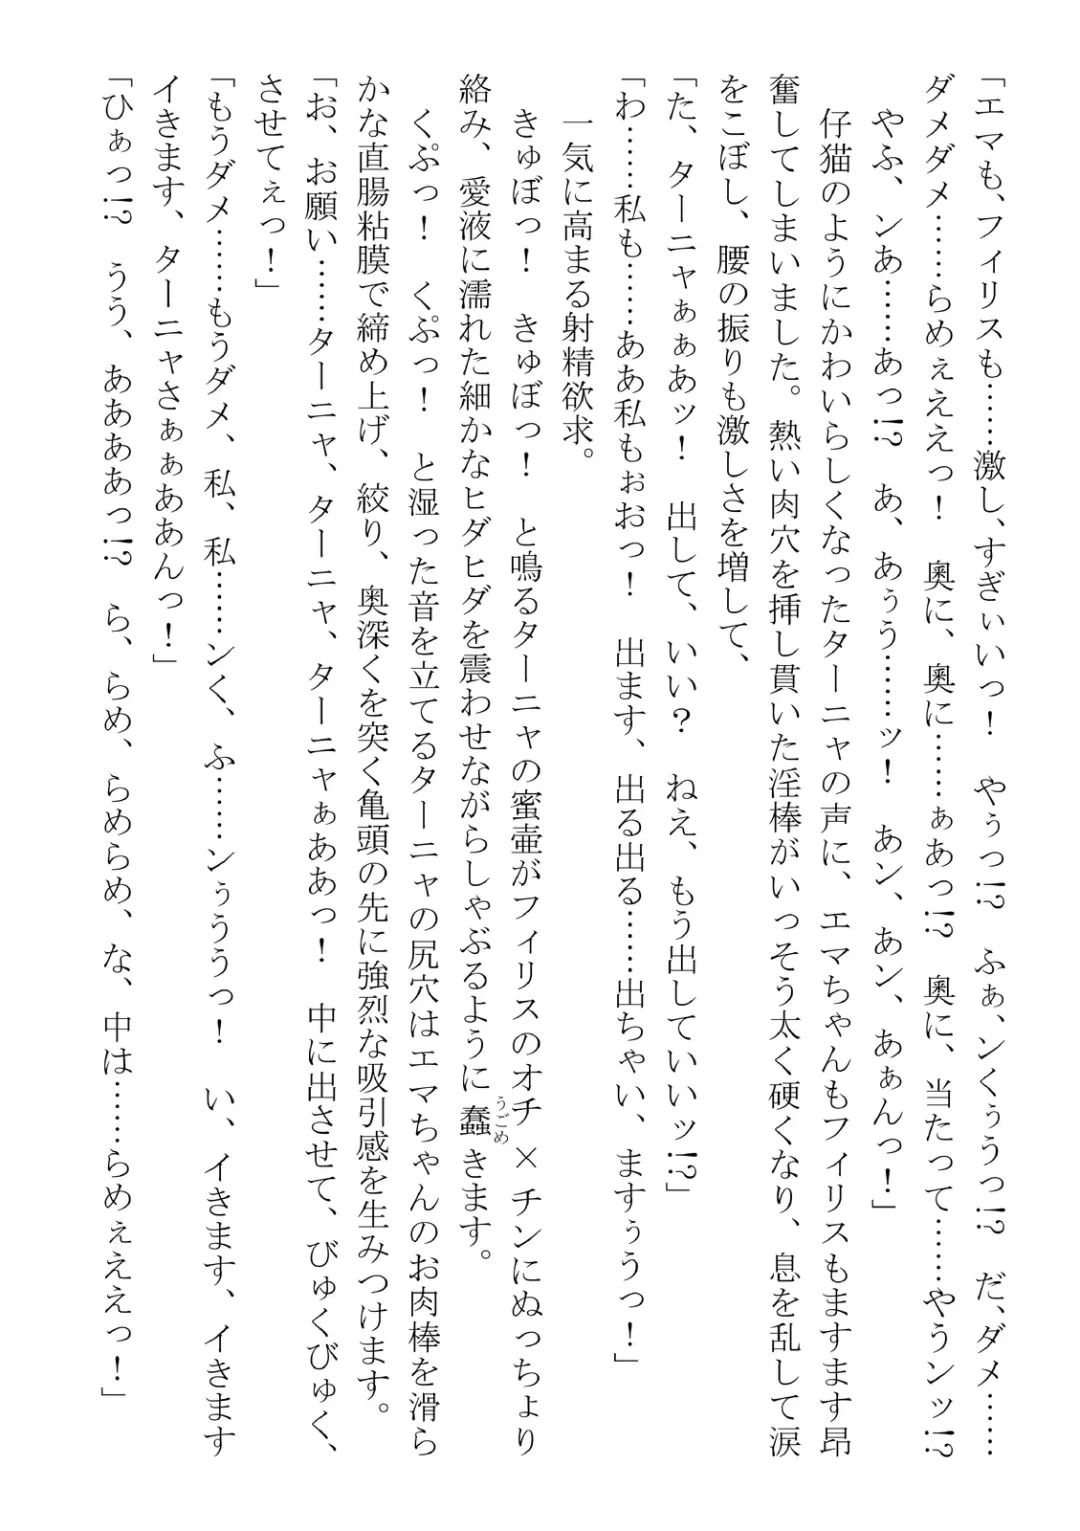 「エマも、フィリスも……激し、すぎぃいっ！　やぅっ!?　ふぁ、ンくぅうっ!?　だ、ダメ……
ダメダメ……らめぇええっ！　奥に、奥に……ぁあっ!?　奥に、当たって……やうンッ!?
やふ、ンあ……あっ!?　あ、あぅう……ッ！　あン、あン、あぁんっ！」
　仔猫のようにかわいらしくなったターニャの声に、エマちゃんもフィリスもますます昂
奮してしまいました。熱い肉穴を挿し貫いた淫棒がいっそう太く硬くなり、息を乱して涙
をこぼし、腰の振りも激しさを増して、
「た、ターニャぁぁあッ！　出して、いい？　ねえ、もう出していいッ!?」
「わ……私も……ああ私もぉおっ！　出ます、出る出る……出ちゃい、ますぅうっ！」
　一気に高まる射精欲求。
　きゅぼっ！　きゅぼっ！　と鳴るターニャの蜜壷がフィリスのオチ×チンにぬっちょり
絡み、愛液に濡れた細かなヒダヒダを震わせながらしゃぶるように蠢うごめきます。
　くぷっ！　くぷっ！　と湿った音を立てるターニャの尻穴はエマちゃんのお肉棒を滑ら
かな直腸粘膜で締め上げ、絞り、奥深くを突く亀頭の先に強烈な吸引感を生みつけます。
「お、お願い……ターニャ、ターニャ、ターニャぁああっ！　中に出させて、びゅくびゅく、
させてぇっ！」
「もうダメ……もうダメ、私、私……ンく、ふ……ンぅううっ！　い、イきます、イきます
イきます、ターニャさぁぁああんっ！」
「ひぁっ!?　うう、ああああっ!?　ら、らめ、らめらめ、な、中は……らめぇええっ！」